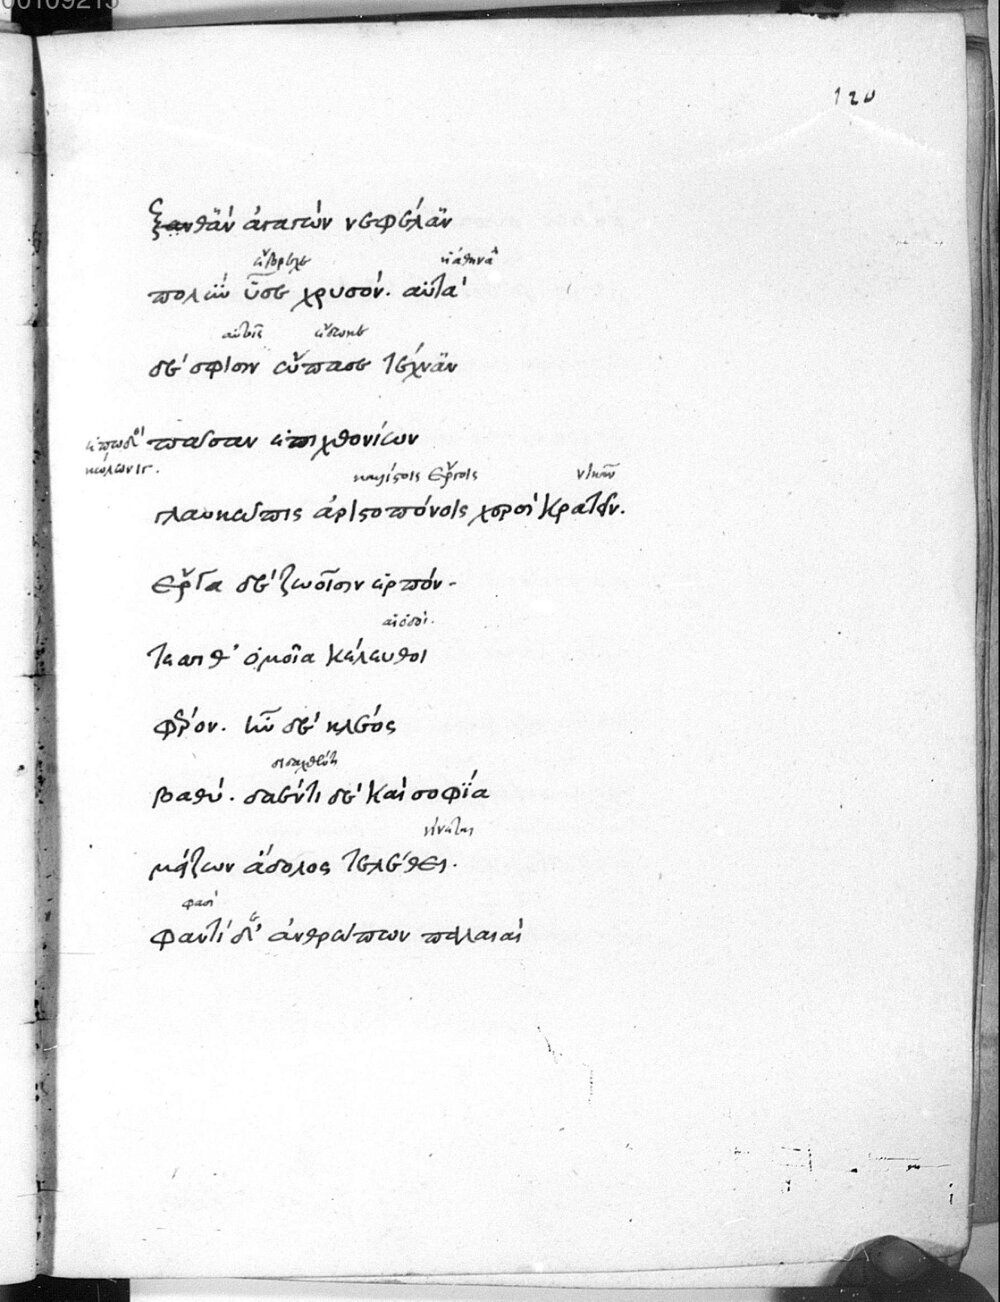 00109215
120
ξανθὰν ἀγαγὼν νεφέλαν
ἔβρεχε ἡ ἀθηνᾶ
πολὺν ὗσε χρυσόν. αὐτὰ
αὐτοῖς ἔδωκε
δέ σφισιν ὤπασε τέχναν
ἐπῳδοὶ πᾶσαν ἐπιχθονίων
κώλων ιγ.
καλλίστοις ἔργοις νικᾶν
γλαυκῶπις ἀριστοπόνοις χερσὶ κρατεῖν.
ἔργα δὲ ζωοῖσιν ἑρπόν-
αἱ ὁδοὶ.
τεσσι θ' ὁμοῖα κέλευθοι
φέρον. ἦν δὲ κλέος
βαθύ. δαέντι δὲ καὶ σοφία
μείζων ἄδολος τελέθει.
φασὶ
φαντὶ δ' ἀνθρώπων παλαιαὶ